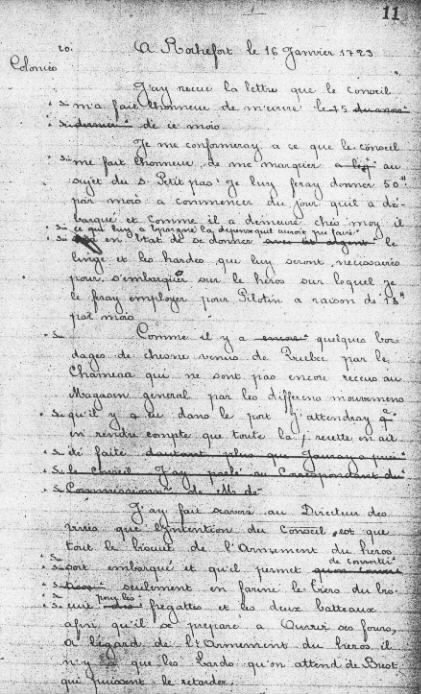 11
20. A Rochefort le 16 Janvier 1723
Colonies
J'ay recue la lettre que le Conseil
m'a fait l'honneur de m'ecrire le 15 du mois
dernier de ce mois
Je me conformeray a ce que le conseil
me fait l'honneur de me marquer au
sujet du s. Petit pas. Je luy feray donner 50"
par mois a commencer du jour quil a dé-
barqué et Comme il a demeuré chés moy il
ce qui luy a epargné la depense quil auroit pu faire
en Etat de se donner avec cet argent le
linge et les hardes que luy seront necessaires
pour s'embarquer sur le heros sur lequel je
le feray employer pour Pilotin a raison de 18"
par mois
Comme il y a encore quelques bor-
dages de chesne venus de Quebec par le
Chameau qui ne sont pas encore receus au
Magasin general par les differens mouvemens
qu'il y a eu dans le port j'attendray a
en rendre compte que toute la recette en ait
été faite dautant plus que Jauray
le Conseil J'ay parlé au Correspondant du
Commissionnaire de Mr de
J'ay fait savoir au Directeur des
vivres que l'intention du Conseil est que
tout le biscuit de l'Armement du heros
de convertir
soit embarqué et qu'il permet
seulement en farine le tiers du bis-
pour les
cuit des fregattes et les deux batteaux
afin qu'il se prepare a Ouvrir ses fours,
a l'égard de l'Armement du heros il
n'y a que les lards qu'on attend de Brest
qui puissent le retarder.